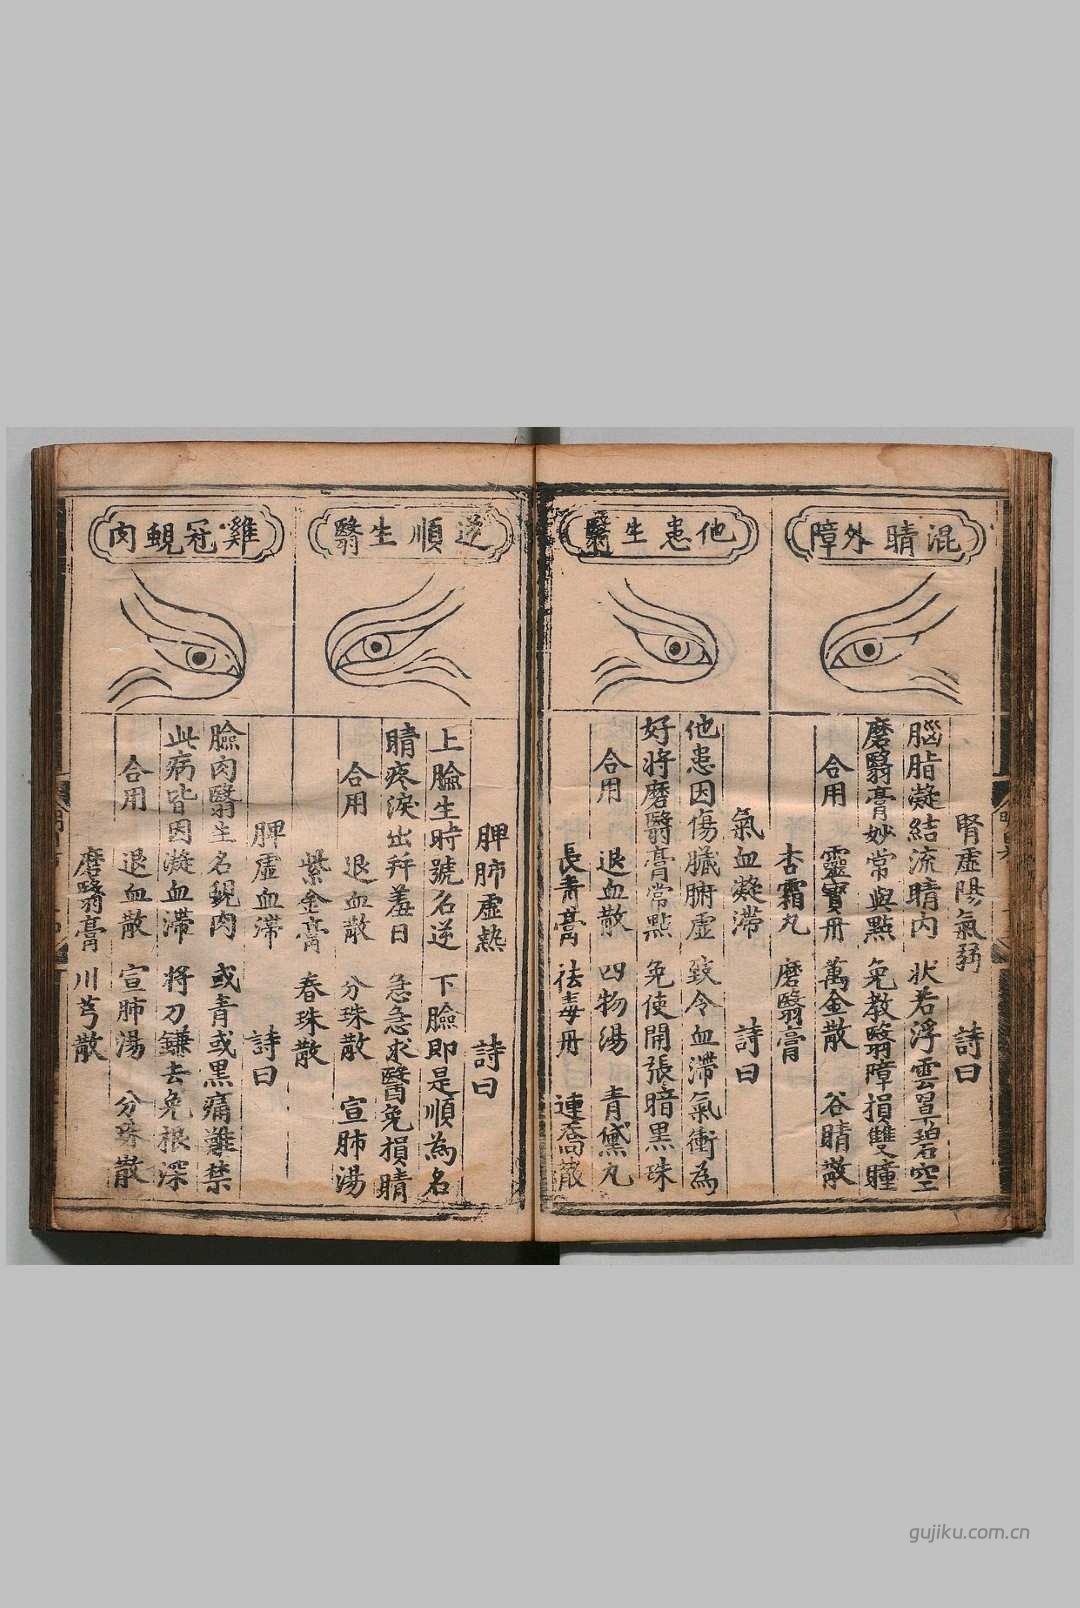 混睛外障
腎虛陽氣弱　詩曰
腦脂凝結流睛内　狀若浮雲翠碧空
磨翳膏妙常與點　免教翳障損雙瞳
合用　靈寶丹　萬金散　谷睛散
杏霜丸　磨翳膏
他患生翳
氣血凝滯　詩曰
他患因傷臟腑虛　致令血滯氣衝為
好將磨翳膏常點　免使開張暗黑珠
合用　退血散　四物湯　青黛丸
長青膏　祛毒丹　連喬散
逆順生翳
脾肺虛熱　詩曰
上臉生時號名逆　下臉即是順為名
睛疼淚出幷羞日　急急求醫免損睛
合用　退血散　分珠散　宣肺湯
紫金膏　春珠散
雞冠蜆肉
脾虛血滯　詩曰
臉肉翳生名蜆肉　或青或黑痛難禁
此病皆因凝血滯　將刀鐮去免根深
合用　退血散　宣肺湯　分珠散
磨翳膏　川芎散
gujiku.com.cn